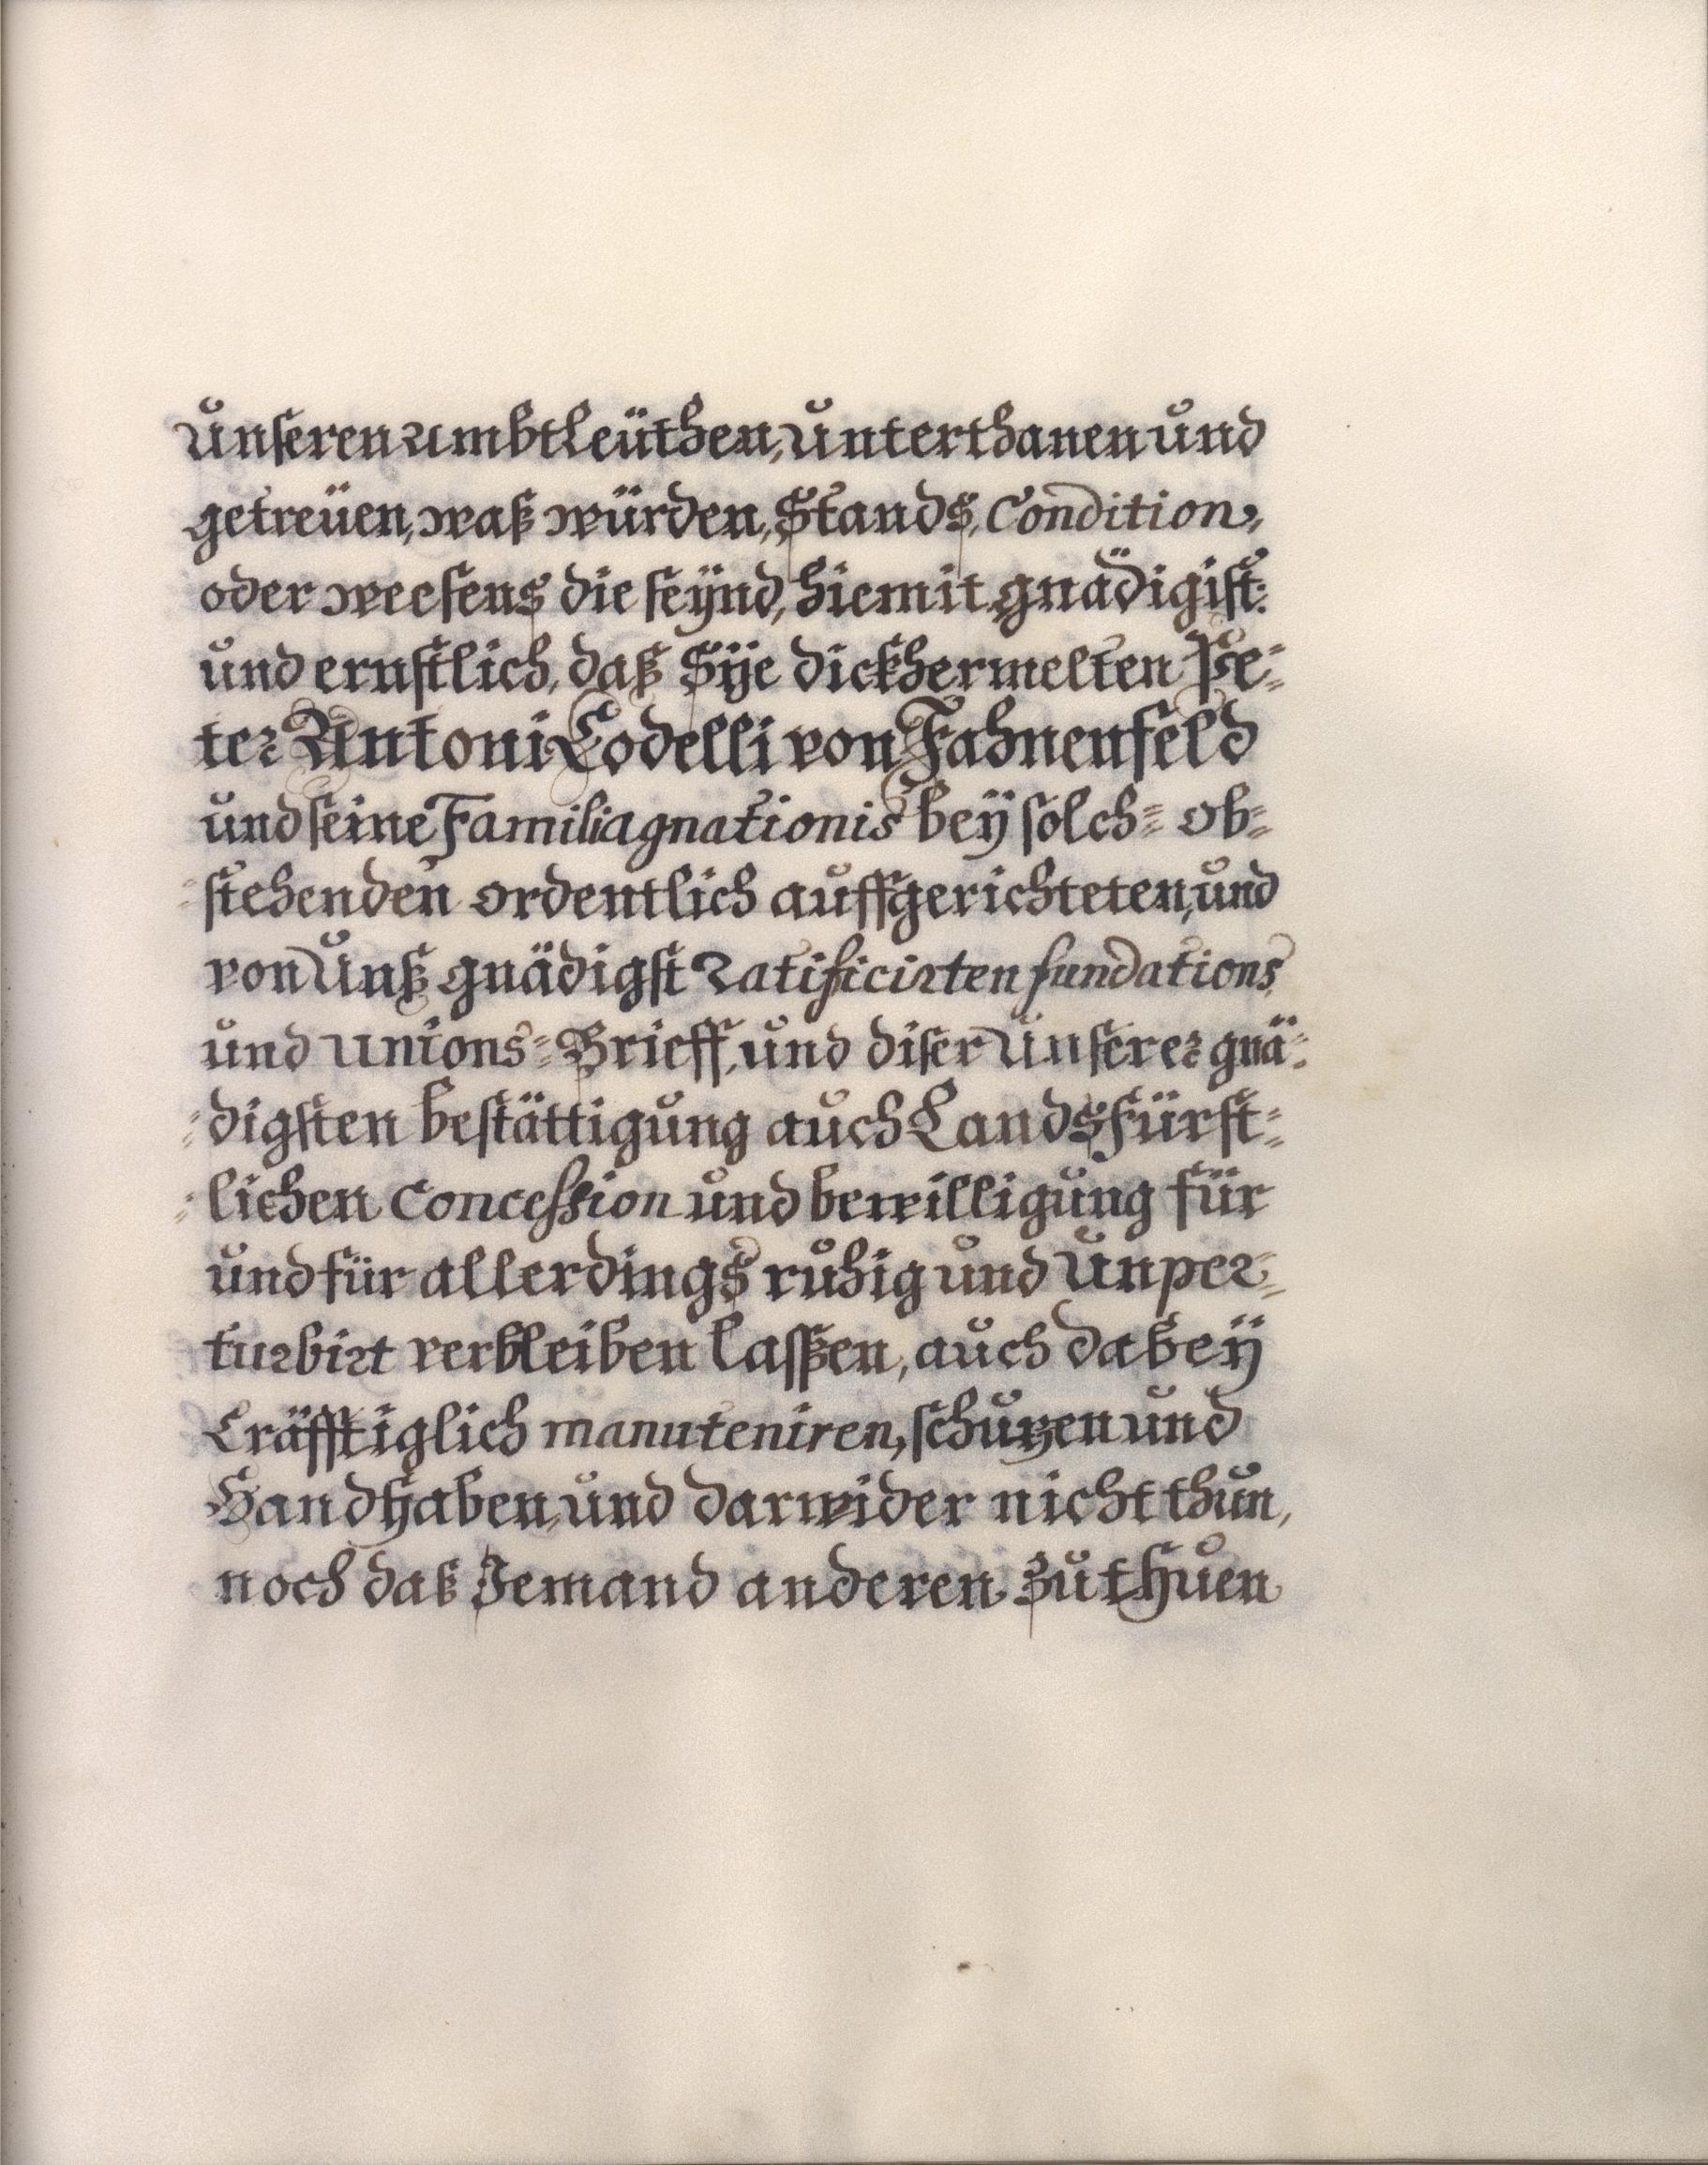 Unseren Ambtleüthen, Unterthanen und
getreüen, waß würden, Stands, Condition,
oder weesens die seÿnd, hiemit gnädigist:
und ernstlich, daß Sÿe dickhermelten Pe-
ter Antoni Codelli von Fahnenfeld
und seine Familiagnationis beÿ solch- ob-
stehenden ordentlich auffgerichteten, und
von Unß gnädigst Ratificirten fundations,
und Unions-Brieff, und diser Unserer gnä-
digsten bestättigung auch Landsfürst-
lichen Concession und bewilligung für
und für allerdings ruhig und Unper-
turbirt verbleiben laßen, auch dabeÿ
Cräfftiglich manuteniren, schuzen und
Handhaben, und darwider nicht thun,
noch daß Jemand anderen Zuthuen